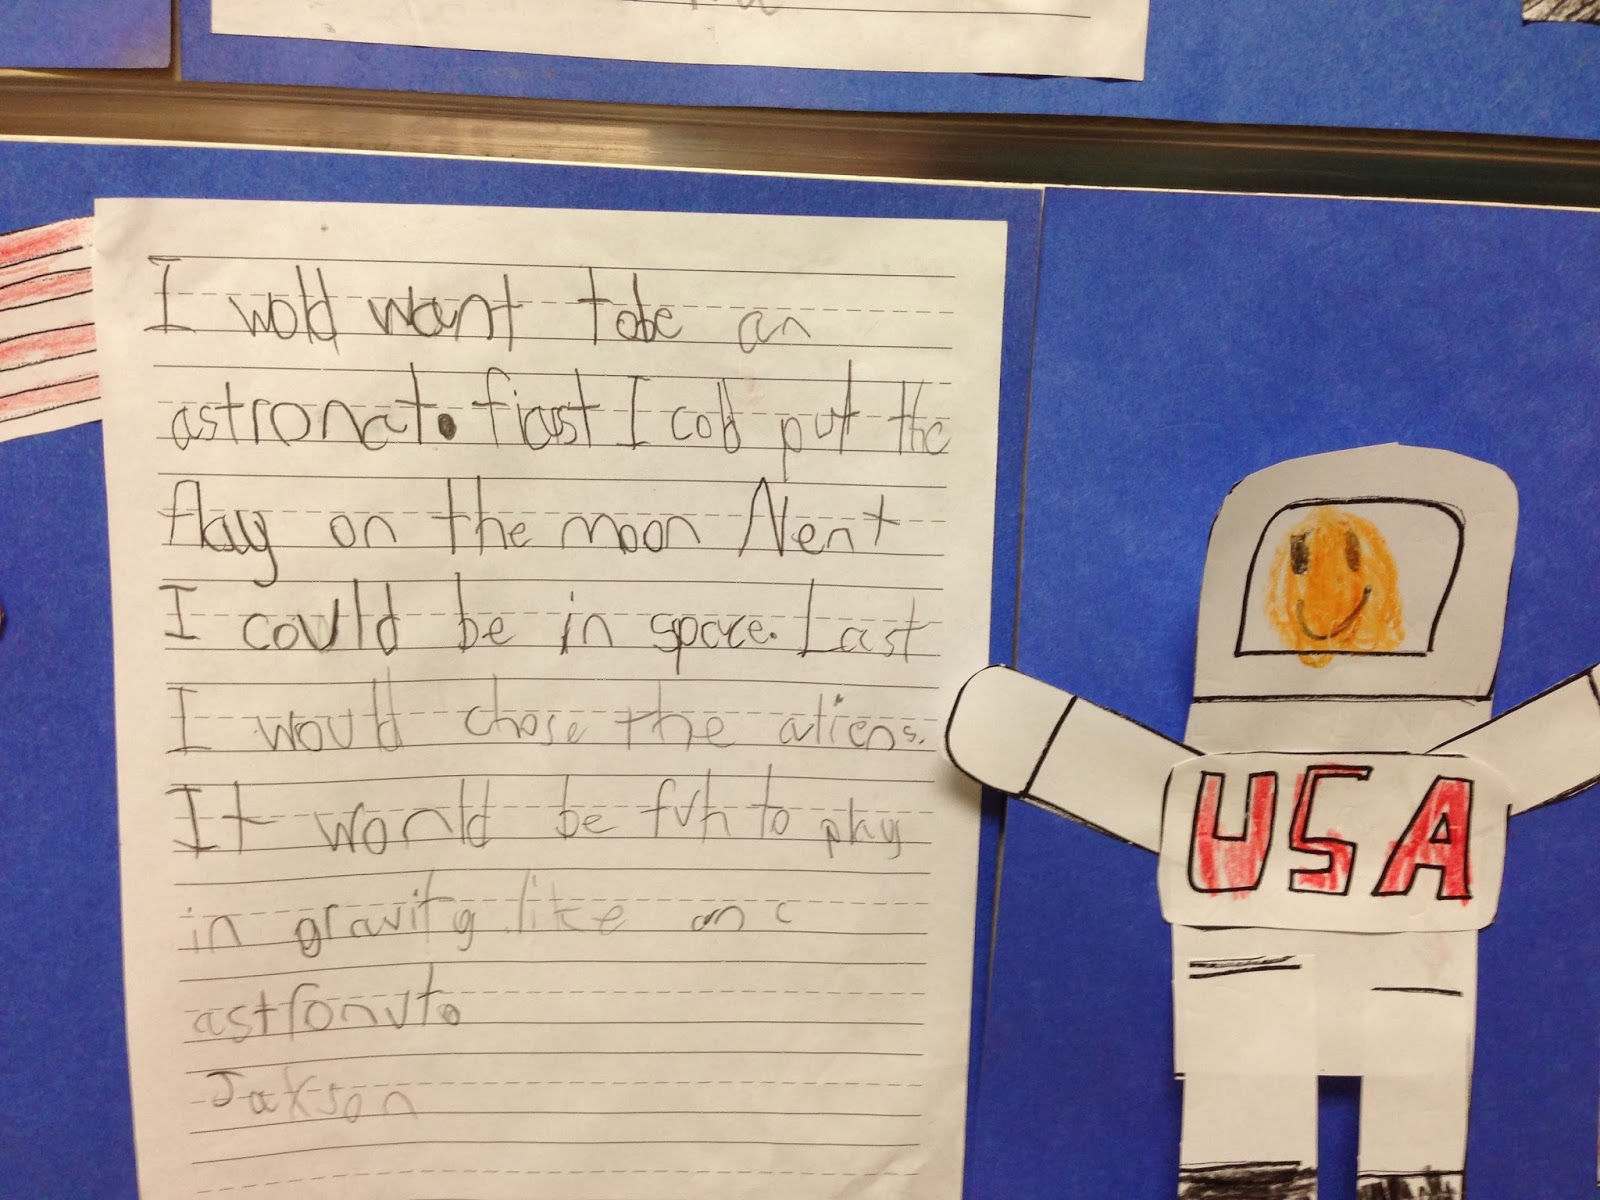 I wold want tobe an
astronat. fiast I cold put the
flag on the moon Nent
I could be in space. Last
I would chose the aliens.
It would be fun to play
in gravity like an
astronut.
Jakson
USA